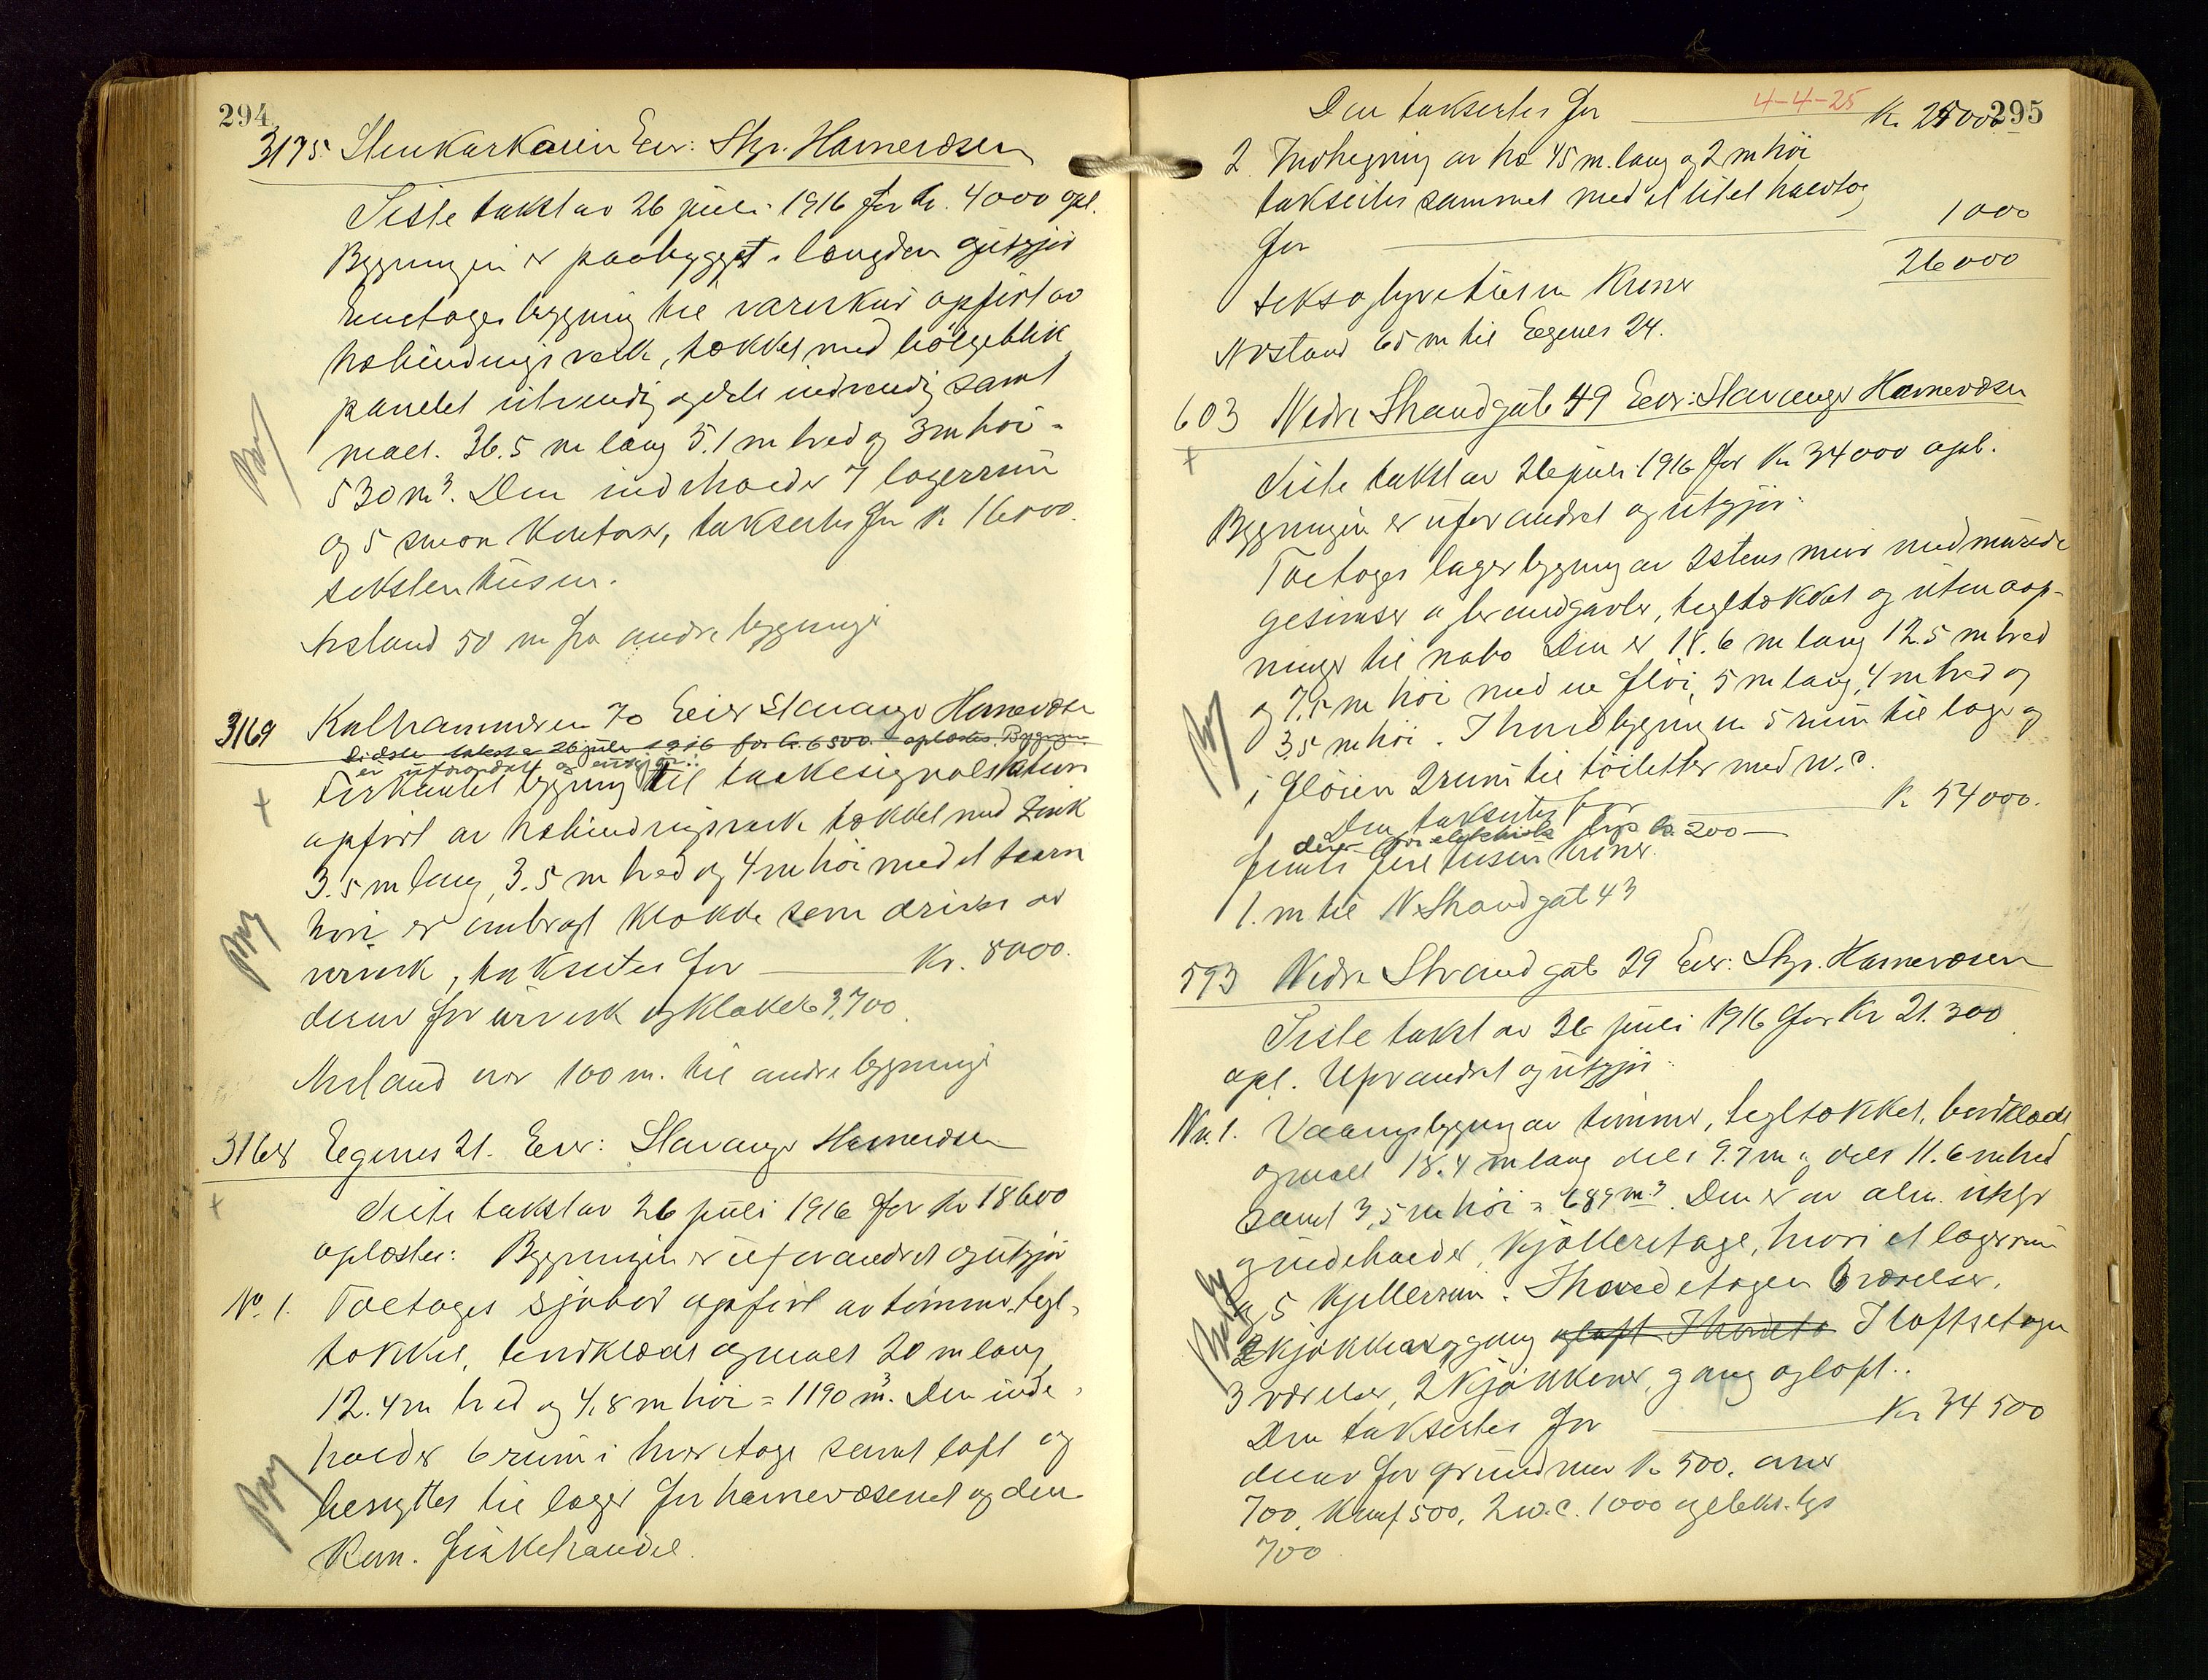 294
3175 Stenkarkaien Eier: Stgr. Havnevæsen
Siste takst av 26 juli 1916 for kr. 4000 opl.
Bygningen er paabygget i længden og utgjør
Enetages bygning til vareskur opført av
træbindingsverk, tækket med bølgeblik
panelet utvendig og dels indvendig samt
malt. 36.5 m lang 5.1 m bred og 3 m høi =
530 m³. Den indeholder 7 lagerrum
og 5 smaa kontorer, takseres for kr. 16000
seksten tusen.
Avstand 50 m fra andre bygninger
3169 Kalhammeren 70 Eier Stavanger Havnevæsen
Sidste takst av 26 juli 1916 for kr. 6500. oplæstes. Bygningen
er uforandret og utgjør:
Firkantet bygning til taakesignalstation
opført av træbindingsverk tækket med Zink
3.5 m lang, 3.5 m bred og 4 m høi med et taarn
hvori er anbragt klokke som drives av
urverk, takseres for Kr. 8000.
derav for urverk og klokke kr 3.700.
Avstand over 100 m. til andre bygninger
3168 Egenes 21. Eier: Stavanger Havnevæsen
Siste takst av 26 juli 1916 for kr 18600
oplæstes: Bygningen er uforandret og utgjør
No. 1. Toetages sjøbod opført av tømmer, tegl-
tækket, bordklædt og malt 20 m lang,
12.4 m bred og 4,8 m høi = 1190 m³. Den inde-
holder 6 rum i hver etage samt loft og
benyttes til lager for havnevæsenet og den
Kom. fiskehandel.
295
Den takseres for 4-4-25 Kr. 25000
2. Indhegning av træ 45 m. lang og 2 m høi
takseres sammen med et litet halvtag
for 1000
26000
seksogtyvetusen Kroner
Avstand 65 m til Egenes 24.
603 Nedre Strandgate 49 Eier: Stavanger Havnevæsen
Siste takst av 26 juli 1916 for kr 34000 opl.
Bygningen er uforandret og utgjør:
Toetages lagerbygning av 2 stens mur med murede
gesimser og brandgavler, tegltækket og uten aap-
ninger til nabo Den er 18.6 m lang 12.5 m bred
og 7.5 m høi med en fløi, 5 m lang, 4 m bred og
3.5 m høi. I hovedbygningen 5 rum til lager og
i fløien 2 rum til toiletter med w.c.
Den takseres for k. 54000.
derav for elektrisk lys kr. 200 —
femti fire tusen kroner.
1. m til N. Strandgat 43
593 Nedre Strandgate 29 Eier: Stgr. Havnevæsen
Siste takst av 26 juli 1916 for Kr 21.300
opl. Uforandret og utgjør:
No. 1. Vaaningsbygning av tømmer, tegltækket, bordklædt
og malt 18.4 m lang dels 9.7 m og dels 11.6 m bred
samt 3,5 m høi = 689 m³. Den er av alm. utstyr
og indeholder, kjelleretage, hvori et lagerrum
og 5 kjellerrum. I hovedetagen 6 værelser,
2 kjøkkener og gang og loft. I hovedeta I loftsetagen
3 værelser, 2 kjøkkener, gang og loft..
Den takseres for Kr 34500
derav for grundmur kr. 500, over
700, 500, 2 w.c. 1000 og elektr. lys
700